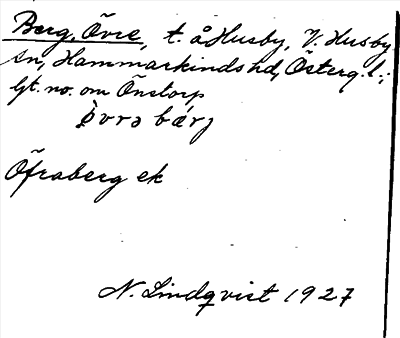 Berg, Övre, t. å Husby, V. Husby
sn, Hammarkinds hd, Österg. l.;
lgt. no. om Önstorp
òvrə bǽrj
Öfraberg ek
N. Lindqvist 1927